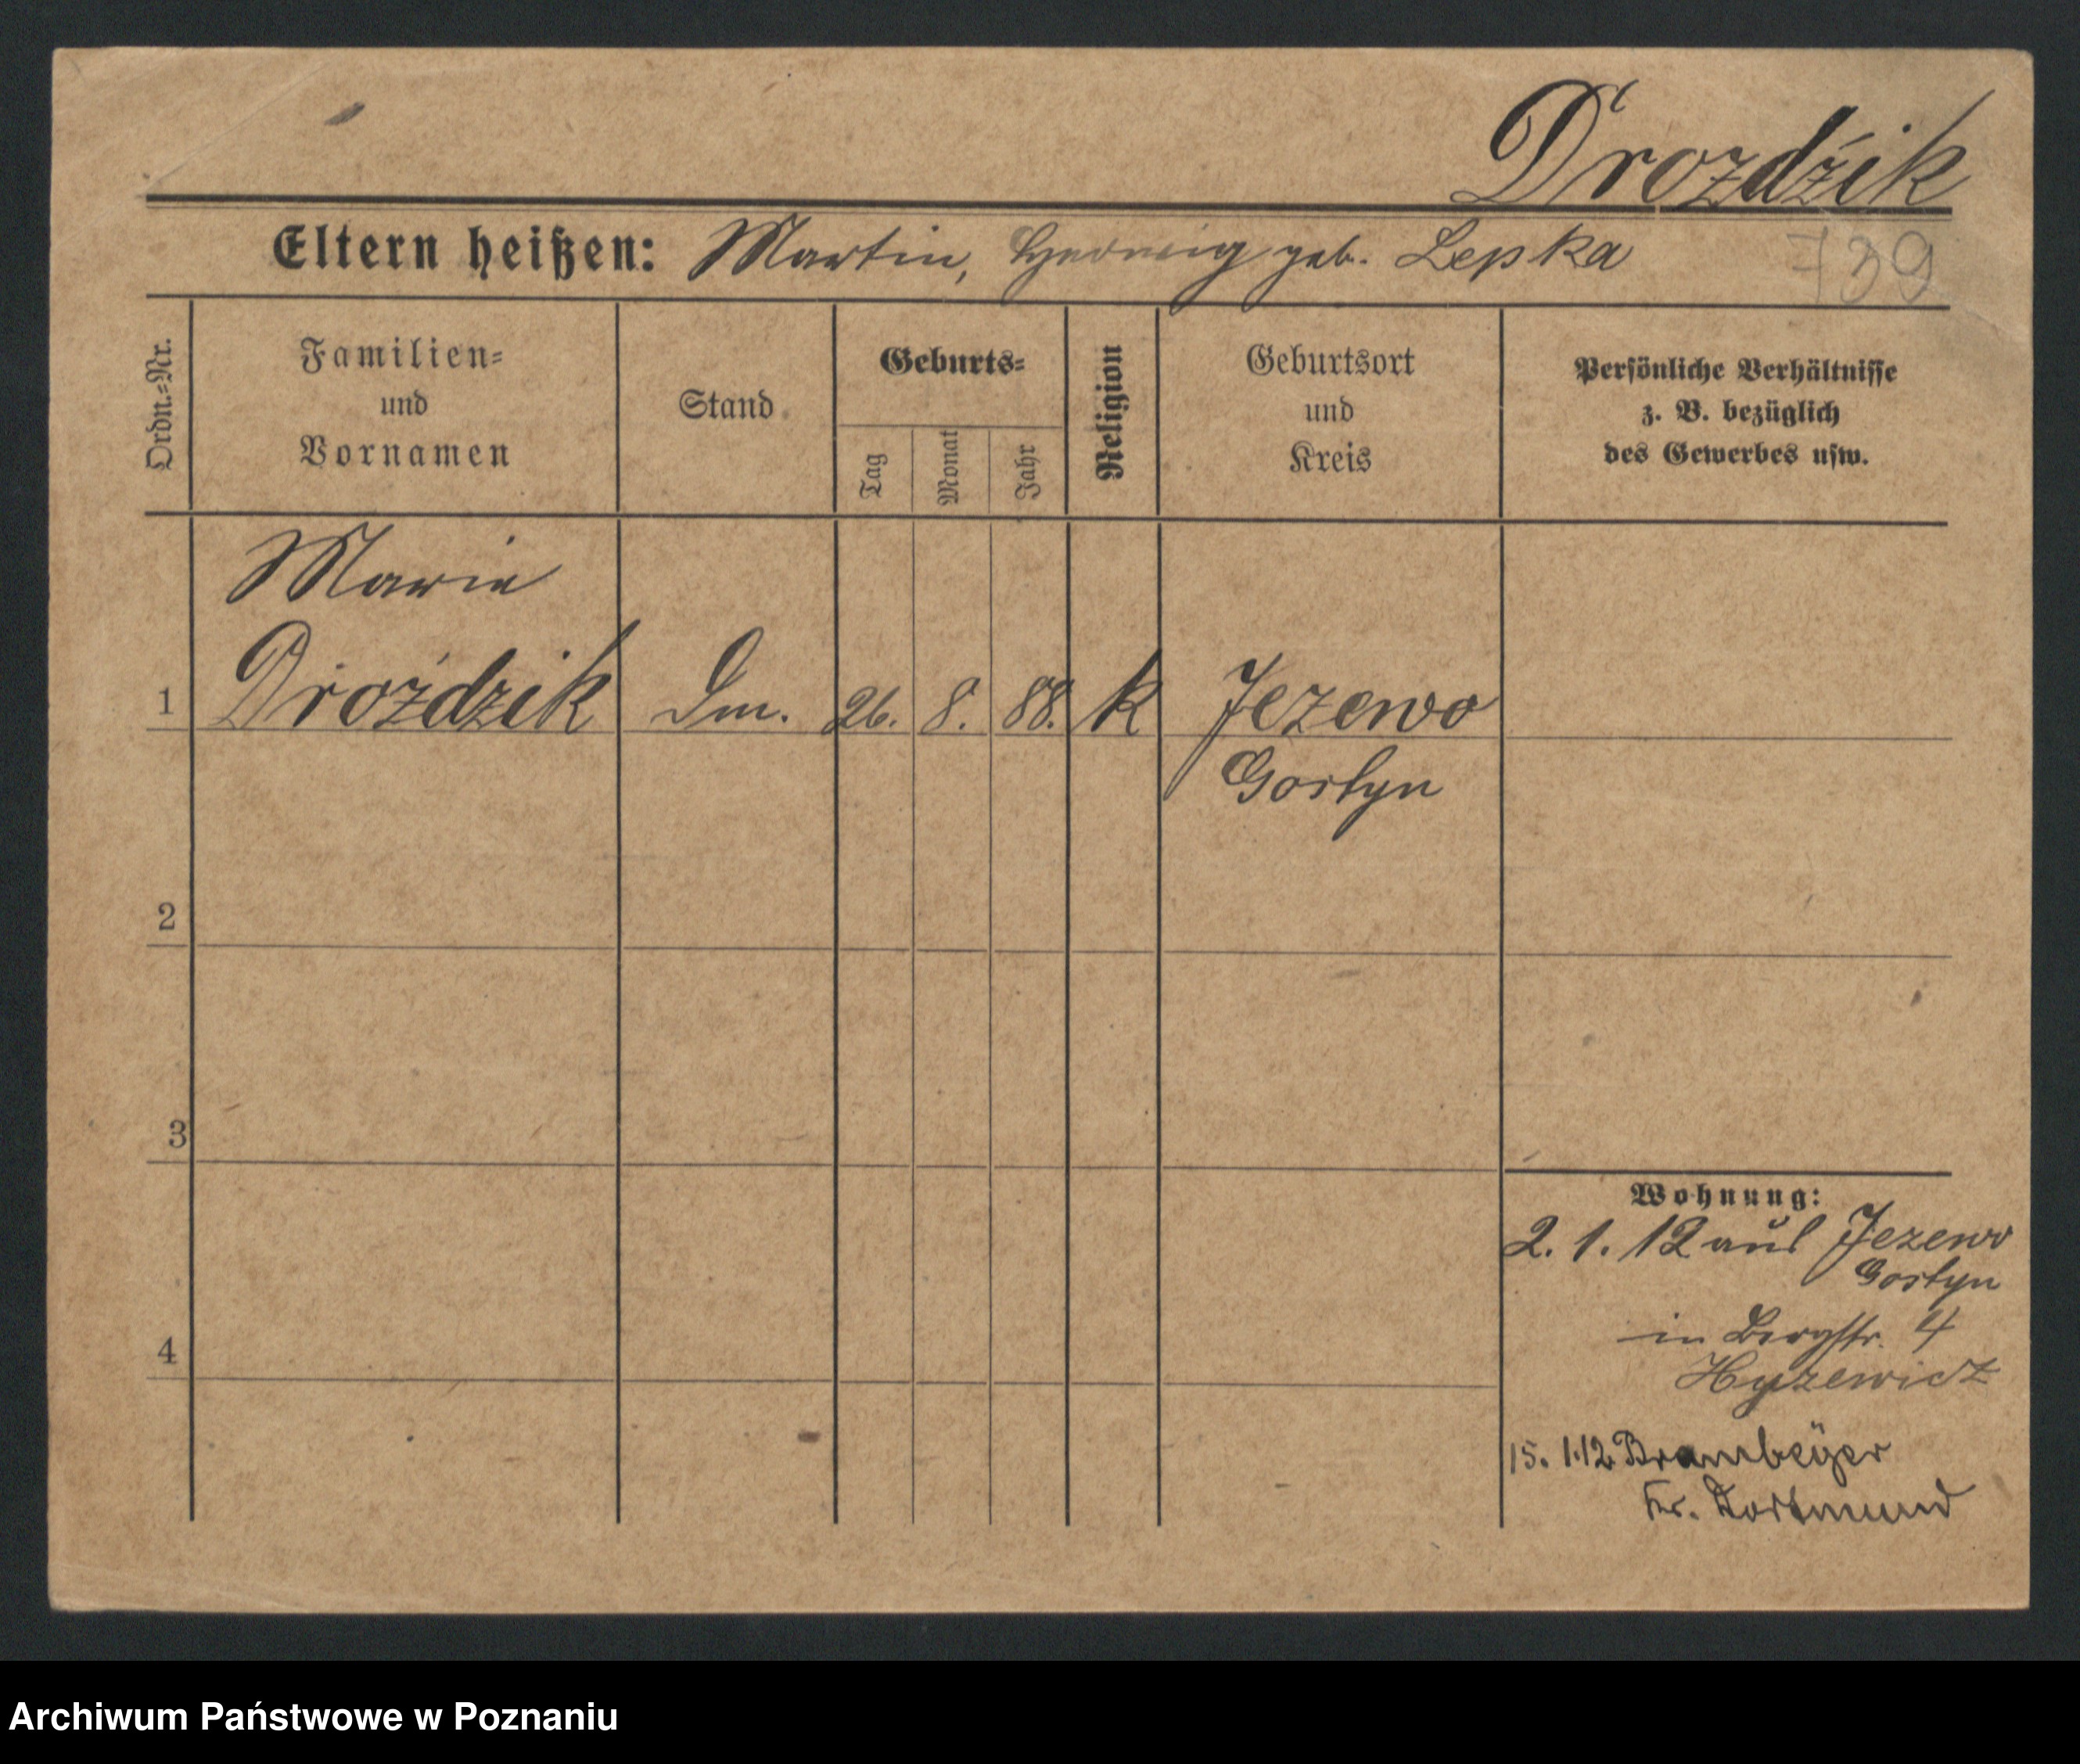 Drozdźik
Eltern heißen: Martin, Hedwig geb. Lepka
739
Ordn.-Nr.
Familien-
und
Vornamen
Stand
Geburts-
Tag
Monat
Jahr
Religion
Geburtsort
und
Kreis
Persönliche Verhältnisse
z. B. bezüglich
des Gewerbes usw.
Marie
1 Droździk Dm. 26. 8. 88. k Jezewo
Gostyn
2
3
4
Wohnung:
2. 1. 12 aus Jezewo
Gostyn
in Bergstr. 4
Hyzewicz
15. 1.12 Brambeÿer
Kr. Dortmund
Archiwum Państwowe w Poznaniu